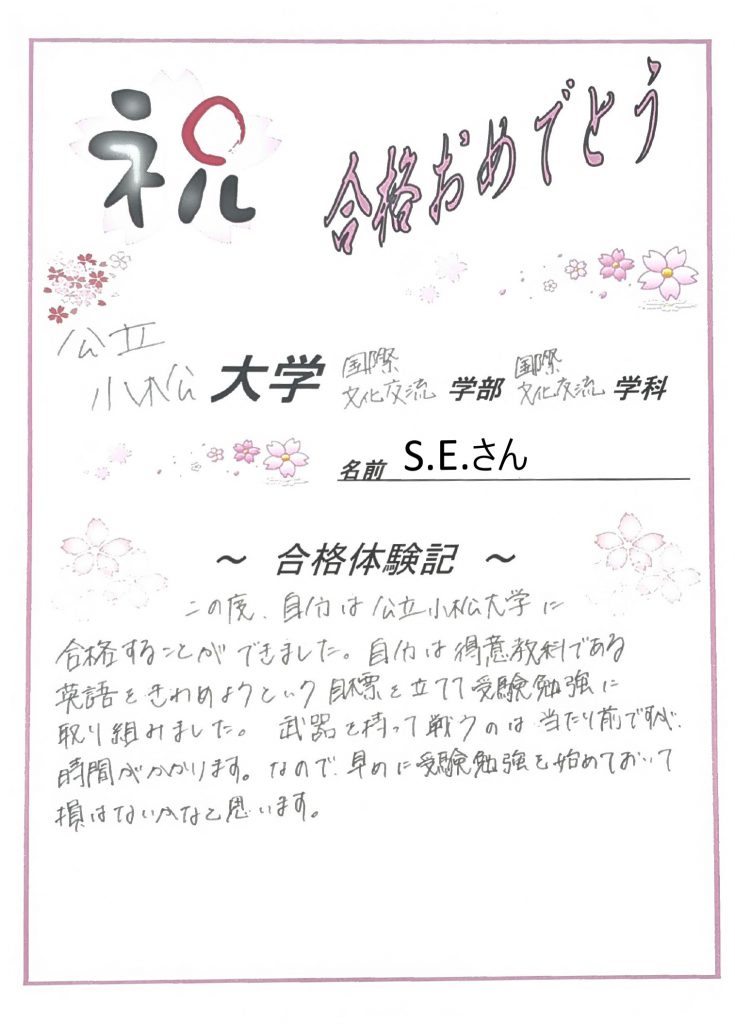 祝
合格おめでとう
公立
小松 大学 国際文化交流 学部 国際文化交流 学科
名前 S.E.さん
~ 合格体験記 ~
この度、自分は公立小松大学に
合格することができました。自分は得意教科である
英語をきわめようという目標を立てて受験勉強に
取り組みました。 武器を持って戦うのは当たり前ですが、
時間がかかります。なので、早めに受験勉強を始めておいて
損はないかなと思います。